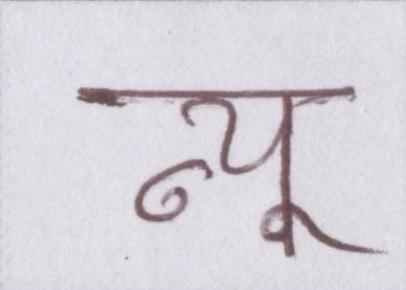 न्यू